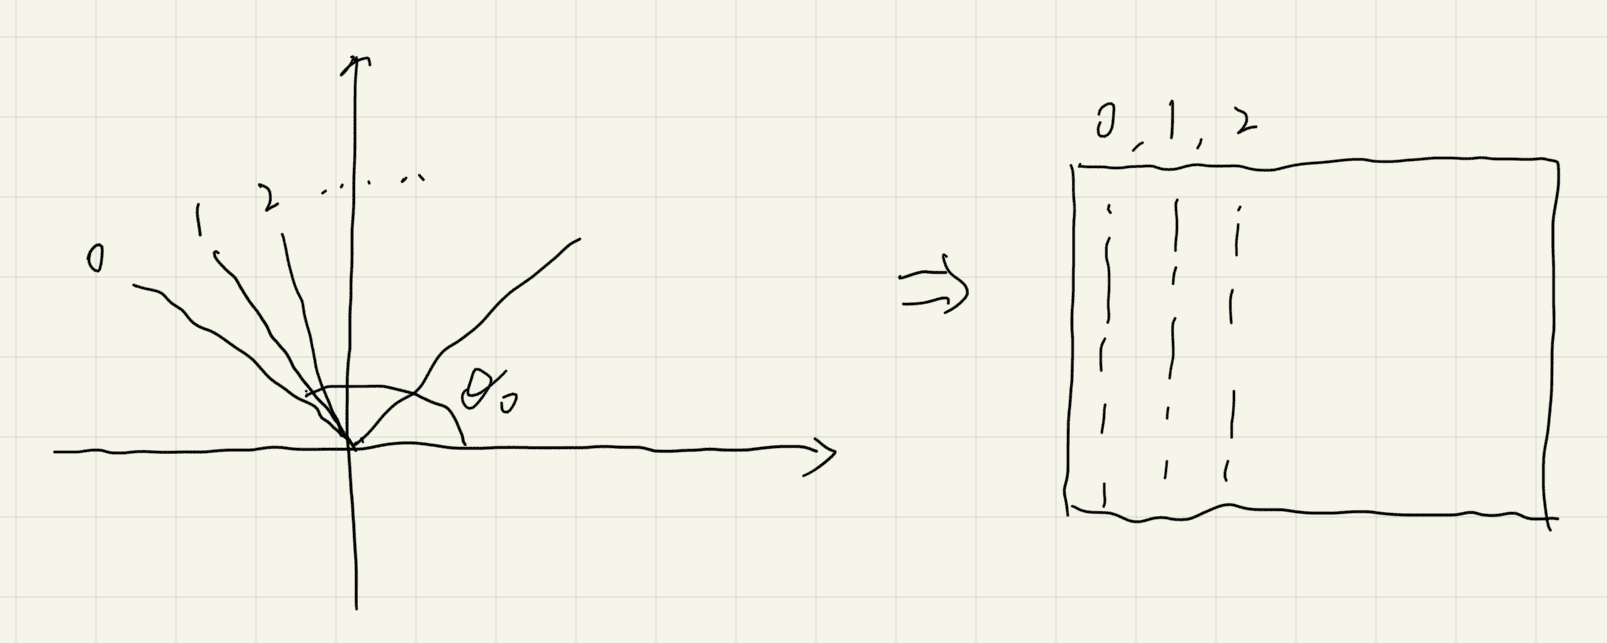 0 1 2 ......
θ₀
⇒
0, 1, 2